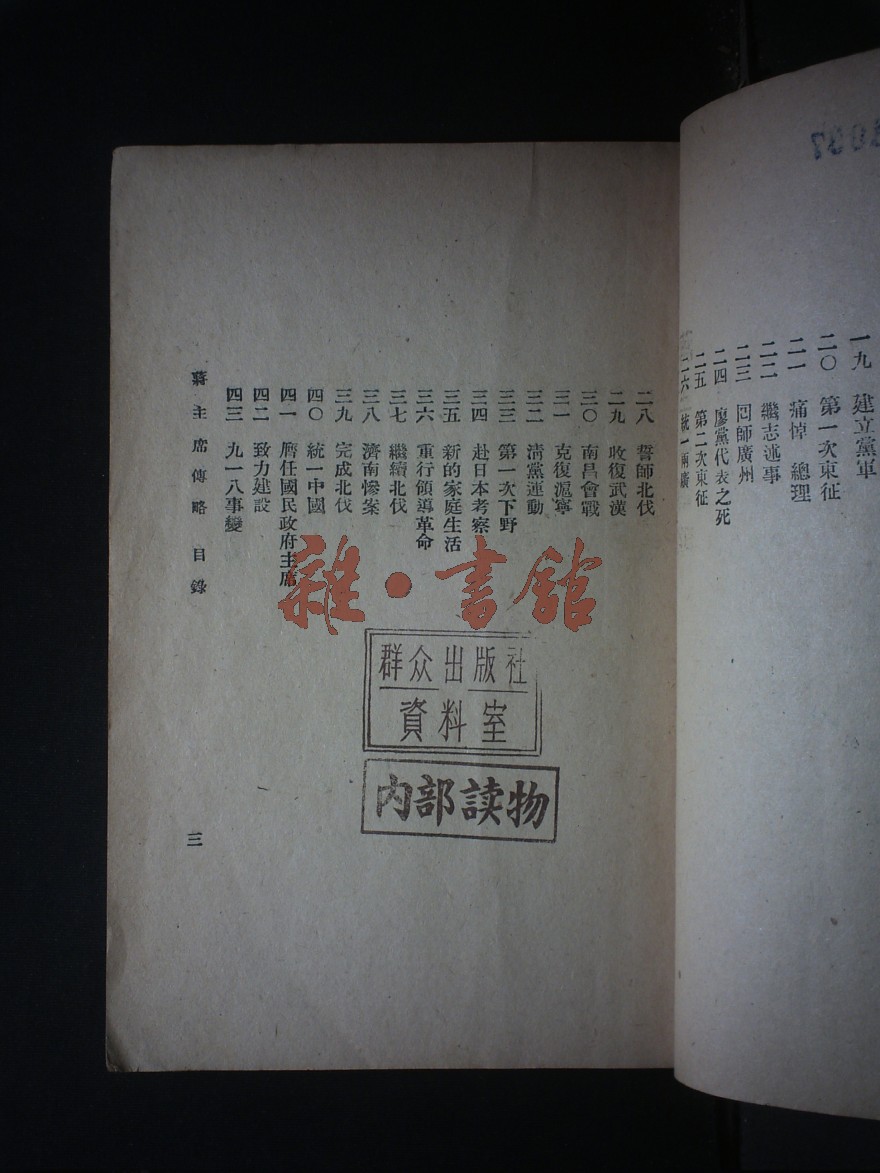 一九 建立黨軍
二〇 第一次東征
二一 痛悼 總理
二二 繼志述事
二三 囘師廣州
二四 廖黨代表之死
二五 第二次東征
二六 統一兩廣
二八 誓師北伐
二九 收復武漢
三〇 南昌會戰
三一 克復滬寧
三二 清黨運動
三三 第一次下野
三四 赴日本考察
三五 新的家庭生活
三六 重行領導革命
三七 繼續北伐
三八 濟南慘案
三九 完成北伐
四〇 統一中國
四一 膺任國民政府主席
四二 致力建設
四三 九一八事變
蔣主席傳略 目錄
三
雜·書館
群众出版社
資料室
内部读物